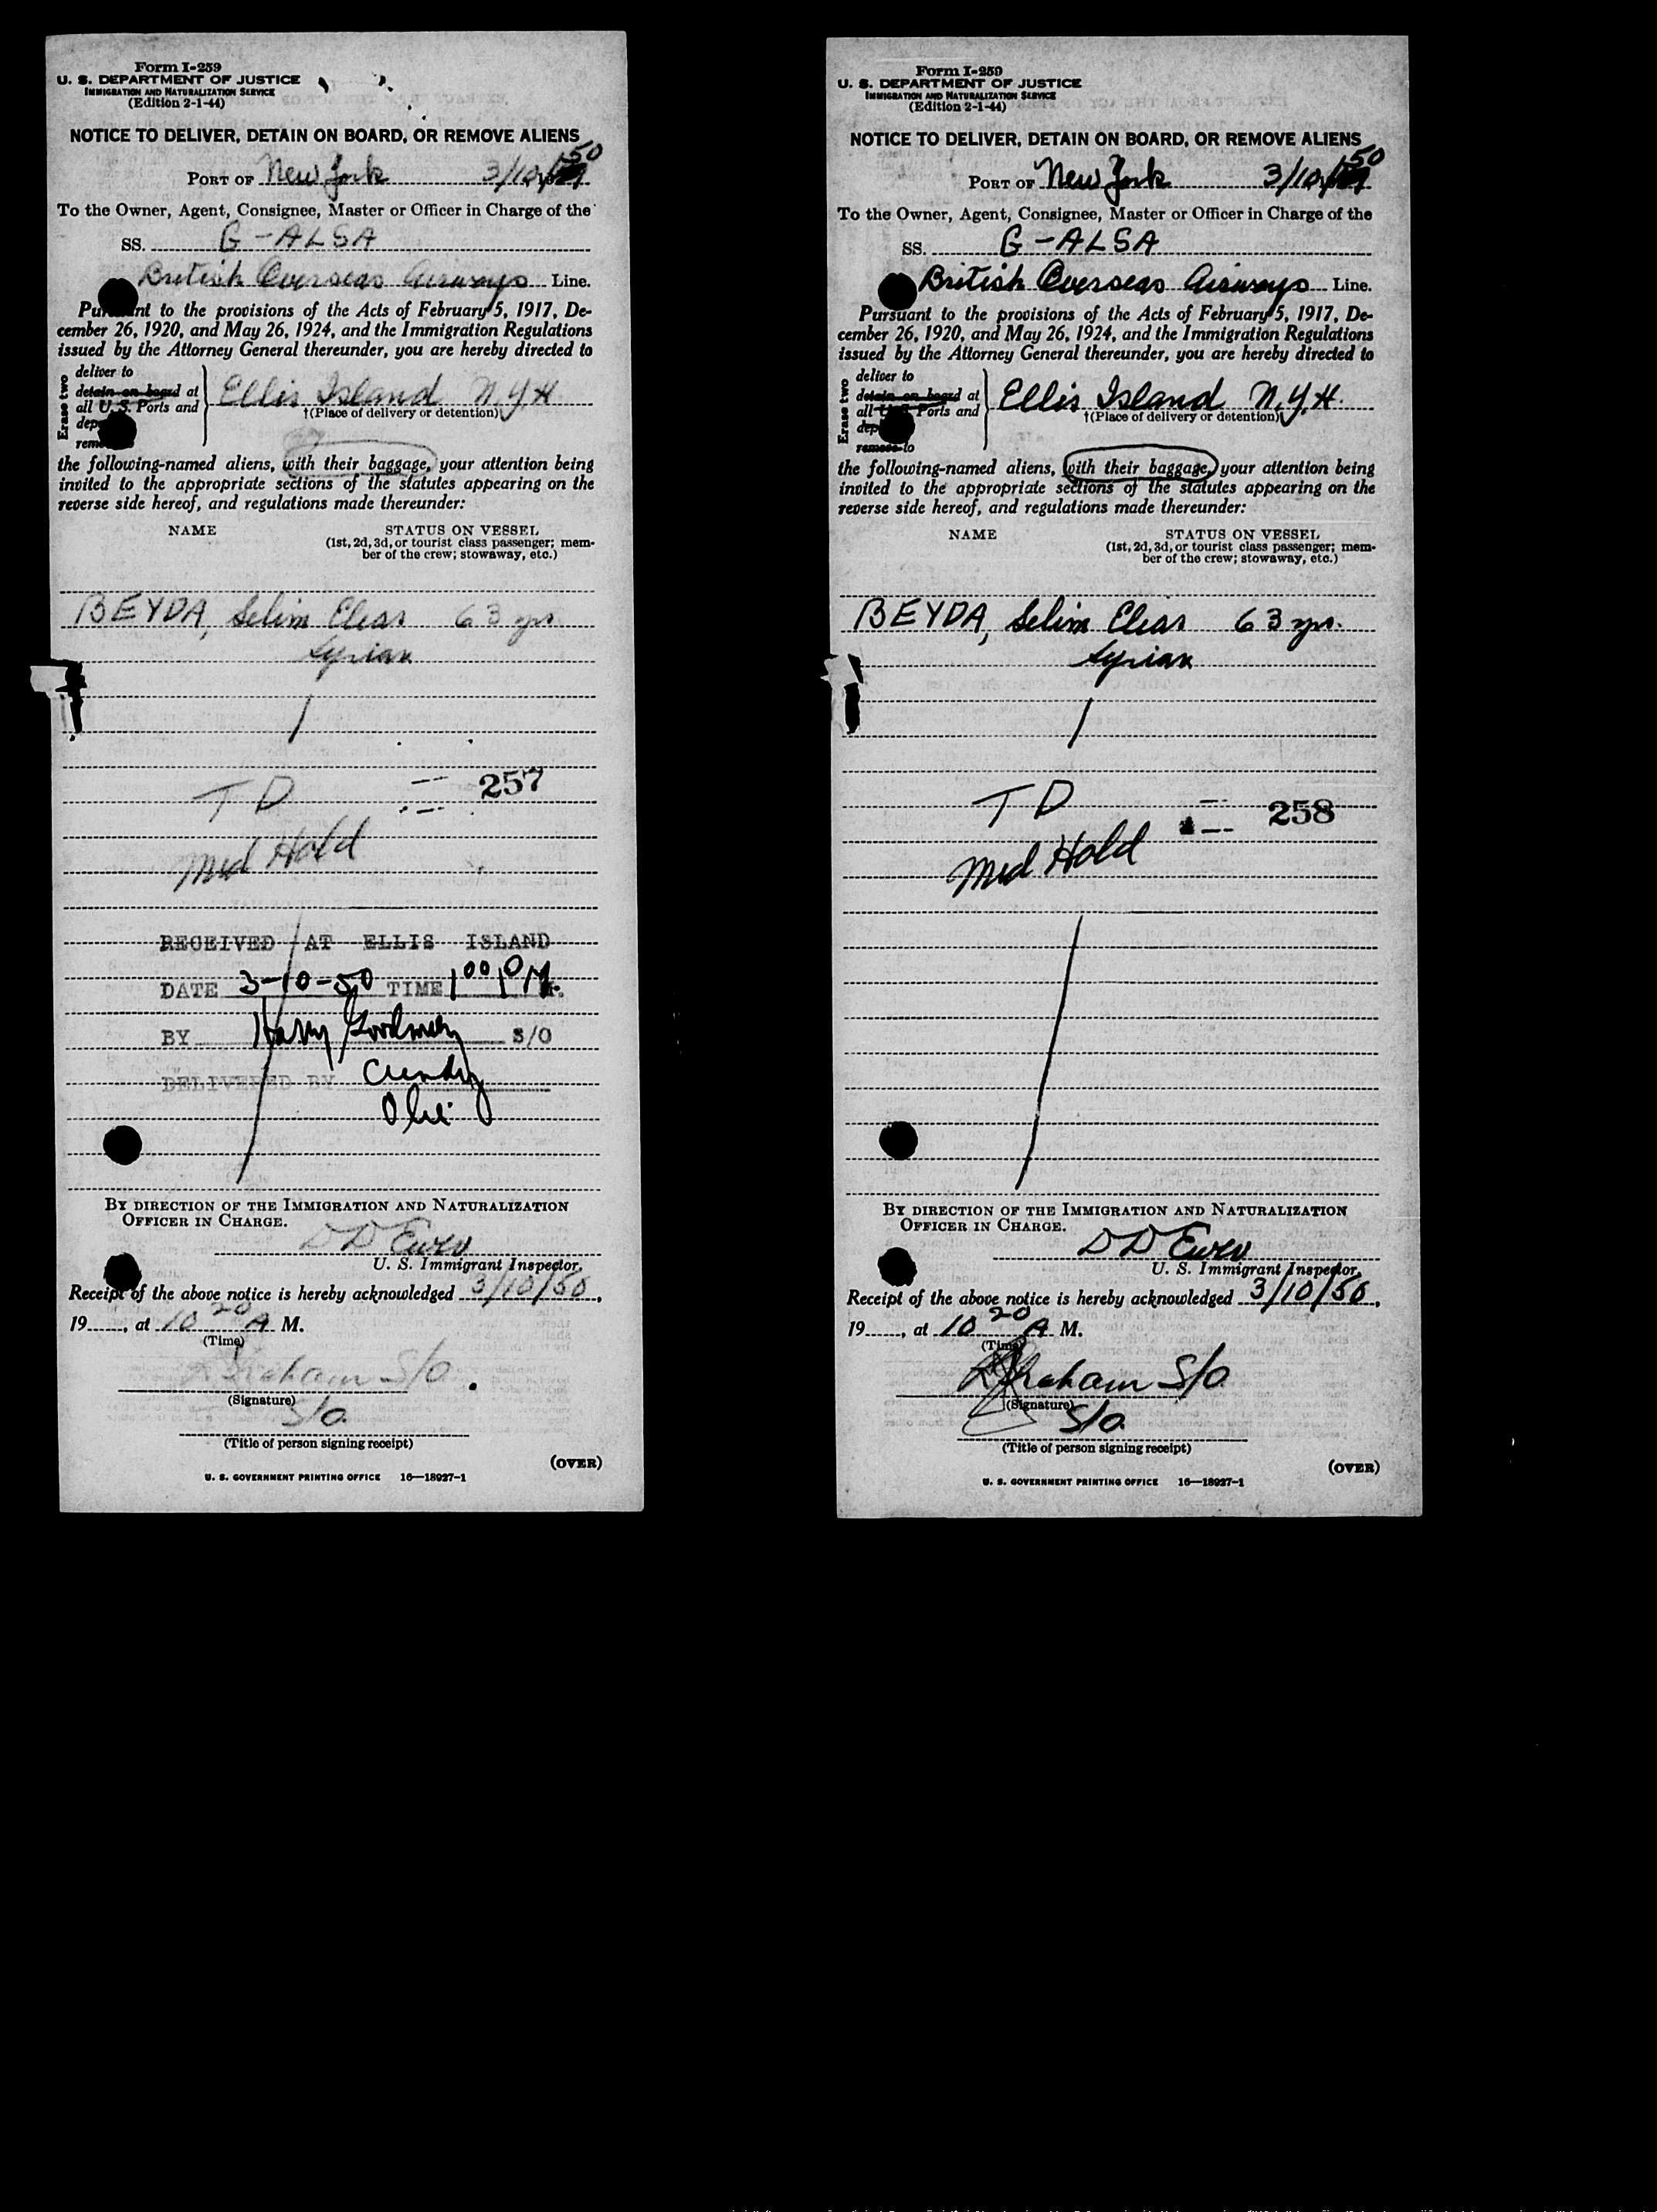 Form I-259
U. S. DEPARTMENT OF JUSTICE
IMMIGRATION AND NATURALIZATION SERVICE
(Edition 2-1-44)
NOTICE TO DELIVER, DETAIN ON BOARD, OR REMOVE ALIENS
PORT OF New York 3/10/50
To the Owner, Agent, Consignee, Master or Officer in Charge of the
SS. G-ALSA
British Overseas Airways Line.
Pursuant to the provisions of the Acts of February 5, 1917, De-
cember 26, 1920, and May 26, 1924, and the Immigration Regulations
issued by the Attorney General thereunder, you are hereby directed to
Erase two
deliver to
detain on board at
all U. S. Ports and
Ellis Island N.Y.H
†(Place of delivery or detention)
the following-named aliens, with their baggage, your attention being
invited to the appropriate sections of the statutes appearing on the
reverse side hereof, and regulations made thereunder:
NAME STATUS ON VESSEL
(1st, 2d, 3d, or tourist class passenger; mem-
ber of the crew; stowaway, etc.)
BEYDA, Selim Elias 63 yrs.
Syrian
TD 257
Med Hold
RECEIVED AT ELLIS ISLAND
DATE 3-10-50 TIME 1 00 P M.
BY Harry Goodman S/O
DELIVERED BY
BY DIRECTION OF THE IMMIGRATION AND NATURALIZATION
OFFICER IN CHARGE.
U. S. Immigrant Inspector.
Receipt of the above notice is hereby acknowledged 3/10/50,
19....., at 10 20 A M.
(Time)
S/O
(Signature)
S/O
(Title of person signing receipt)
(OVER)
U. S. GOVERNMENT PRINTING OFFICE 16—18927-1
Form I-259
U. S. DEPARTMENT OF JUSTICE
IMMIGRATION AND NATURALIZATION SERVICE
(Edition 2-1-44)
NOTICE TO DELIVER, DETAIN ON BOARD, OR REMOVE ALIENS
PORT OF New York 3/10/50
To the Owner, Agent, Consignee, Master or Officer in Charge of the
SS. G-ALSA
British Overseas Airways Line.
Pursuant to the provisions of the Acts of February 5, 1917, De-
cember 26, 1920, and May 26, 1924, and the Immigration Regulations
issued by the Attorney General thereunder, you are hereby directed to
Erase two
deliver to
detain on board at
all U. S. Ports and
remove to
Ellis Island N.Y.H.
†(Place of delivery or detention)
the following-named aliens, with their baggage, your attention being
invited to the appropriate sections of the statutes appearing on the
reverse side hereof, and regulations made thereunder:
NAME STATUS ON VESSEL
(1st, 2d, 3d, or tourist class passenger; mem-
ber of the crew; stowaway, etc.)
BEYDA, Selim Elias 63 yrs.
Syrian
TD 258
Med Hold
BY DIRECTION OF THE IMMIGRATION AND NATURALIZATION
OFFICER IN CHARGE.
U. S. Immigrant Inspector.
Receipt of the above notice is hereby acknowledged 3/10/50,
19....., at 10 20 A M.
(Time)
S/O
(Signature)
S/O
(Title of person signing receipt)
(OVER)
U. S. GOVERNMENT PRINTING OFFICE 16—18927-1